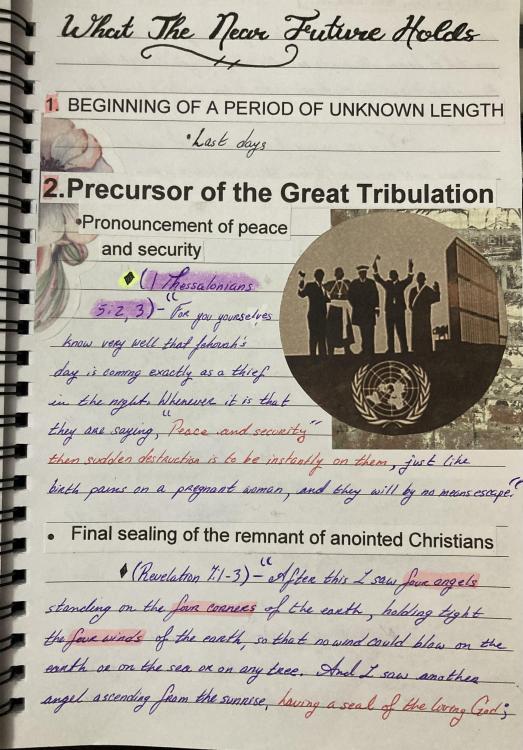 What The Near Future Holds
1. BEGINNING OF A PERIOD OF UNKNOWN LENGTH
•Last days
2.Precursor of the Great Tribulation
•Pronouncement of peace
and security
(1 Thessalonians
5:2,3)-"For you yourselves
know very well that Jehovah's
day is coming exactly as a thief
in the night. Whenever it is that
they are saying, "Peace and security"
then sudden destruction is to be instantly on them, just like
birth pains on a pregnant woman, and they will by no means escape."
• Final sealing of the remnant of anointed Christians
(Revelation 7:1-3)-"After this I saw four angels
standing on the four corners of the earth, holding tight
the four winds of the earth, so that no wind could blow on the
earth or on the sea or on any tree. And I saw another
angel ascending from the sunrise, having a seal of the living God;